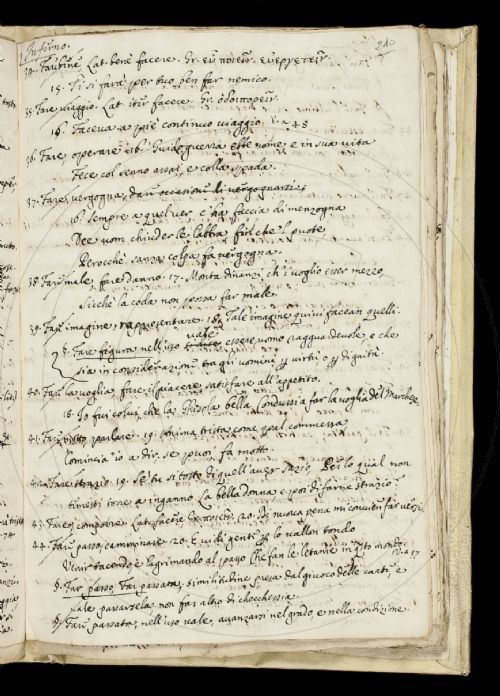 Inferno. 210
34. Far bene Lat. bene facere. Gr. εὐ ποιεῖν. εὐεργετεῖν.
15. Ti si farà per tuo ben far nemico.
35. Fare viaggio. Lat. iter facere. Gr. ὁδοιπορεῖν.
16. Faceva a piè continuo viaggio. v. a 48
36. Fare, operare. 16. Guidoguerra ebbe nome, e in sua vita
Fece col senno assai, e colla spada.
37. Fare, vergogna, dare occasione di vergognarsi.
16. Sempre a quel ver, c'ha faccia di menzogna
Dee uom chiuder le labbra fin che 'l puote
Perocchè sanza colpa fa vergogna.
38. Far male, fare danno. 17. Monta dinanzi, ch'i voglio esser mezzo,
Sicchè la coda non possa far male.
39. Far imagine, rappresentare. 18. Tale imagine quivi facean quelli.
§. Fare figura nell'uso vale essere uomo ragguardevole, e che
sia in considerazione tra gli uomini per virtù o per dignità.
40. Far la voglia, fare il piacere, satisfare all'appetito.
18. Io fui colui, che la Ghisola bella Condussi a far la voglia del Marchese
41. Far motto, parlare. 19. anima trista come pal commessa
Comincia' io a dir, se puoi, fa motto.
42. Fare strazio. 19. Se' tu sì tosto di quell'aver sazio, Per lo qual non
temesti torre a inganno La bella donna e poi di farne strazio?
43. Fare, comporre. Lat. facere. Gr. ποιεῖν. 20. Di nuova pena mi convien far versi.
44. Far passo, camminare. 20. E vidi gente per lo vallon tondo
Venir tacendo, e lagrimando al passo Che fan le letanie in questo mondo. v. a 17
§. Far passo, Far passata, similitudine presa dal giuoco delle carte, e
vale passarsela, non far altro di checchessia.
§. Fare passata, nell'uso vale, avanzarsi nel grado, e nella condizione